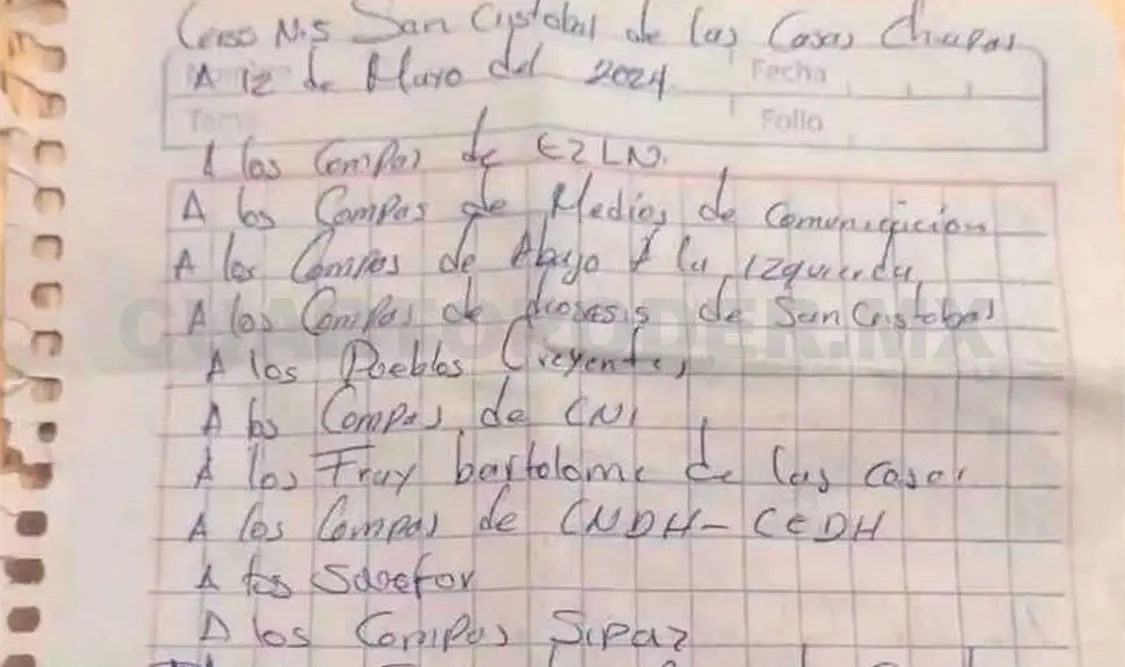 Cerso N.5 San Cristobal de las Casas Chiapas
A 12 de Mayo del 2024 Fecha
Tema Folio
A los Compas de EZLN.
A los Compas de Medios de Comunicicion
A los Compas de Abajo y la izquierda
A los Compas de diosesis de San Cristobal
CUARTOPODER.MX
A los Pueblos Creyentes
A los Compas de CNI
A los Fray bartolome de las casas
A los Compas de CNDH - CEDH
A los
A los Compas Sipaz